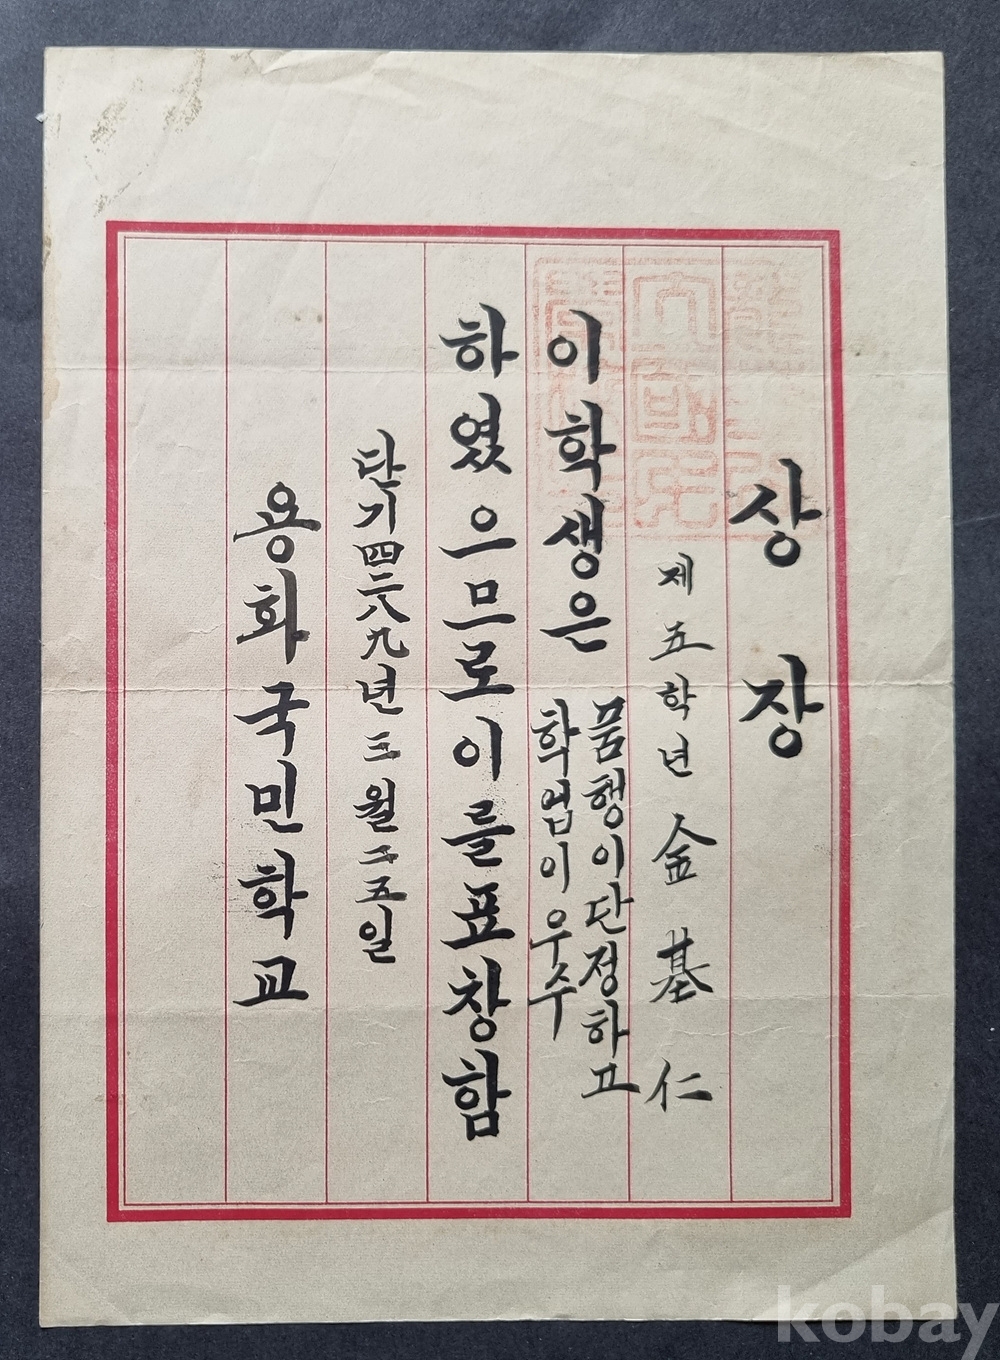 상장
제五학년 金基仁
이 학생은 품행이 단정하고
학업이 우수
하였으므로 이를 표창함
단기四二八九년 三월 二五일
용화국민학교
kobay